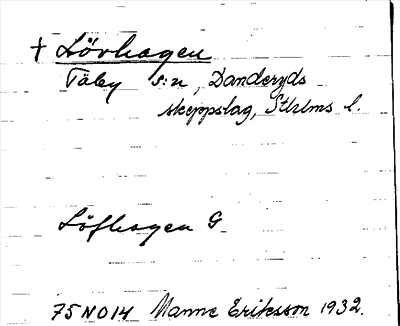 † Lövhagen
Täby s:n, Danderyds
skeppslag, Sthlms l.
Löfhagen G
75 NO 14 Manne Eriksson 1932.